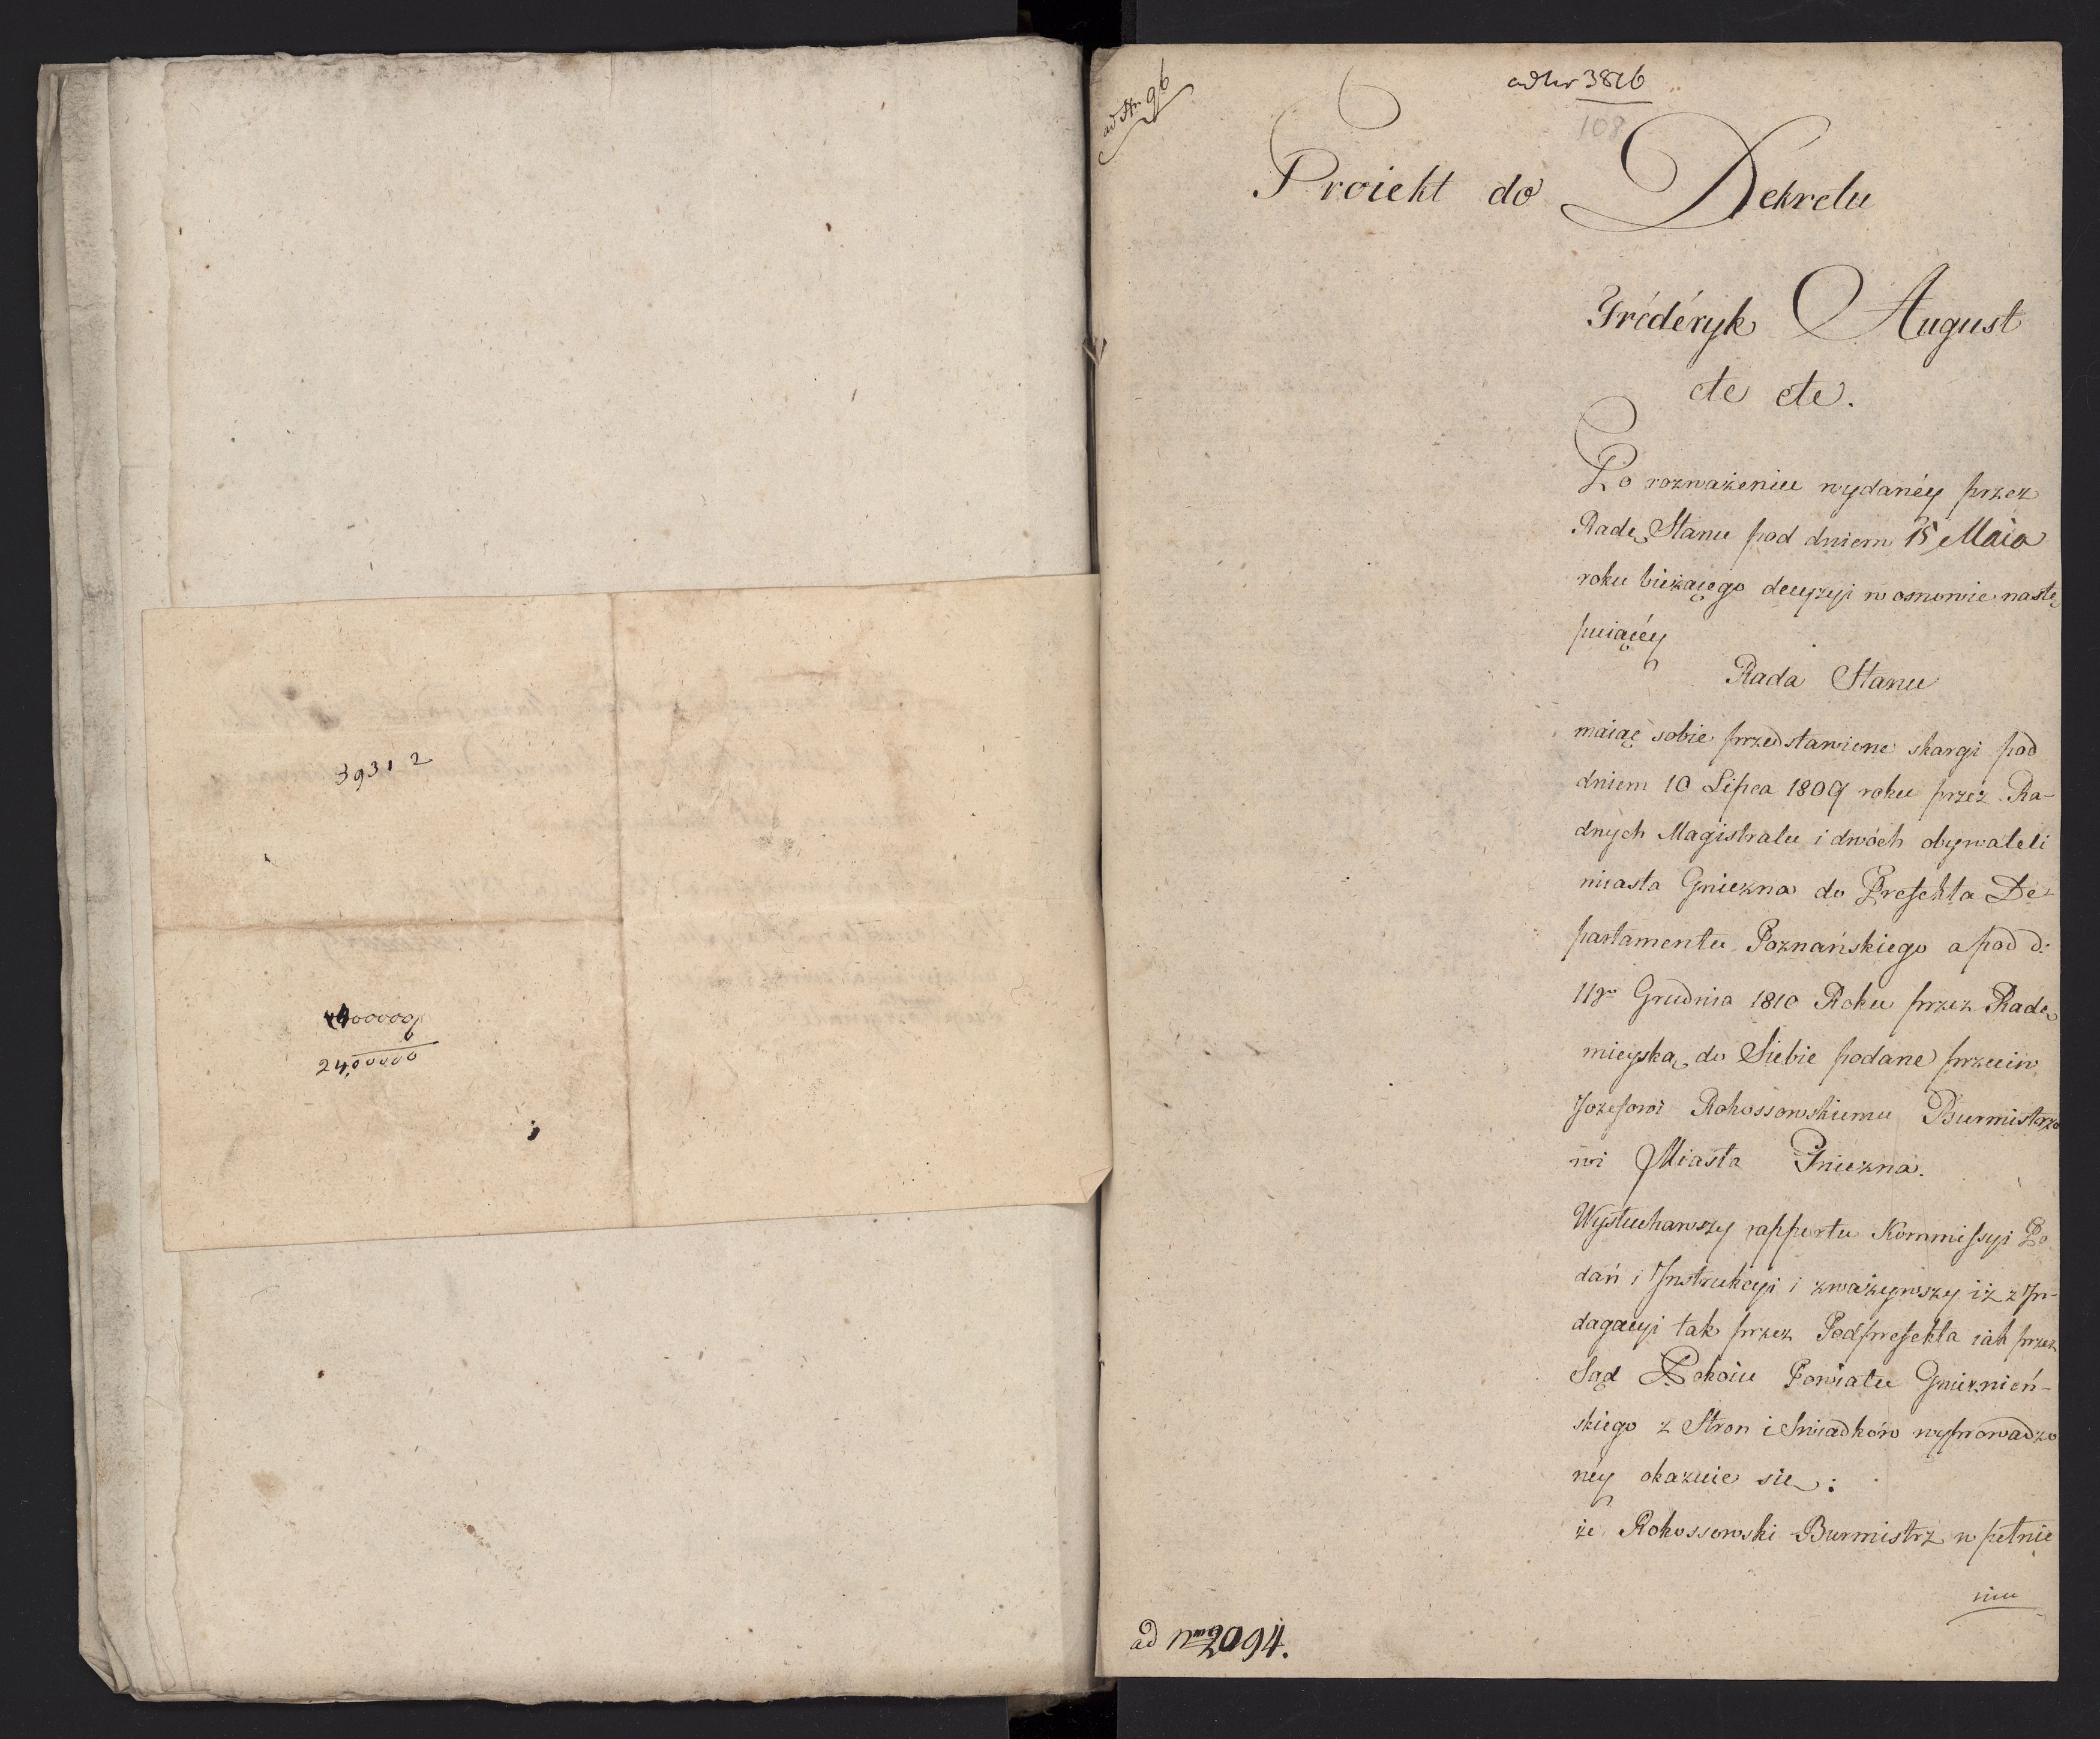 39312
2400000
ad Nr 96
ad Nr 3816
108
Proiekt do Dekretu
Fréderyk August
etc etc.
Po rozważeniu wydanéy przez
Radę Stanu pod dniem 15 Maia
roku bieżącego decyzyi w osnowie nastę
puiącéy
Rada Stanu
maiąc sobie przedstawione skargi pod
dniem 10 Lipca 1809 roku przez Ra-
dnych Magistratu i dwóch obywateli
miasta Gniezna do Prefekta De-
partamentu Poznańskiego a pod d:
11go Grudnia 1810 Roku przez Radę
mieyską do Siebie podane przeciw
Jozefowi Rokossowskiemu Burmistrzo
wi Miasta Gniezna.
Wysłuchawszy rapportu Kommissyi Po
dań i Instrukcyi i zważywszy iż z In-
dagacyi tak przez Podprefekta iak przez
Sąd Pokoiu Powiatu Gnieznień-
skiego z Stron i Swiadków wyprowadzo
néy okazuie się:
że Rokossowski Burmistrz w pełnie
niu
ad Num 2094.